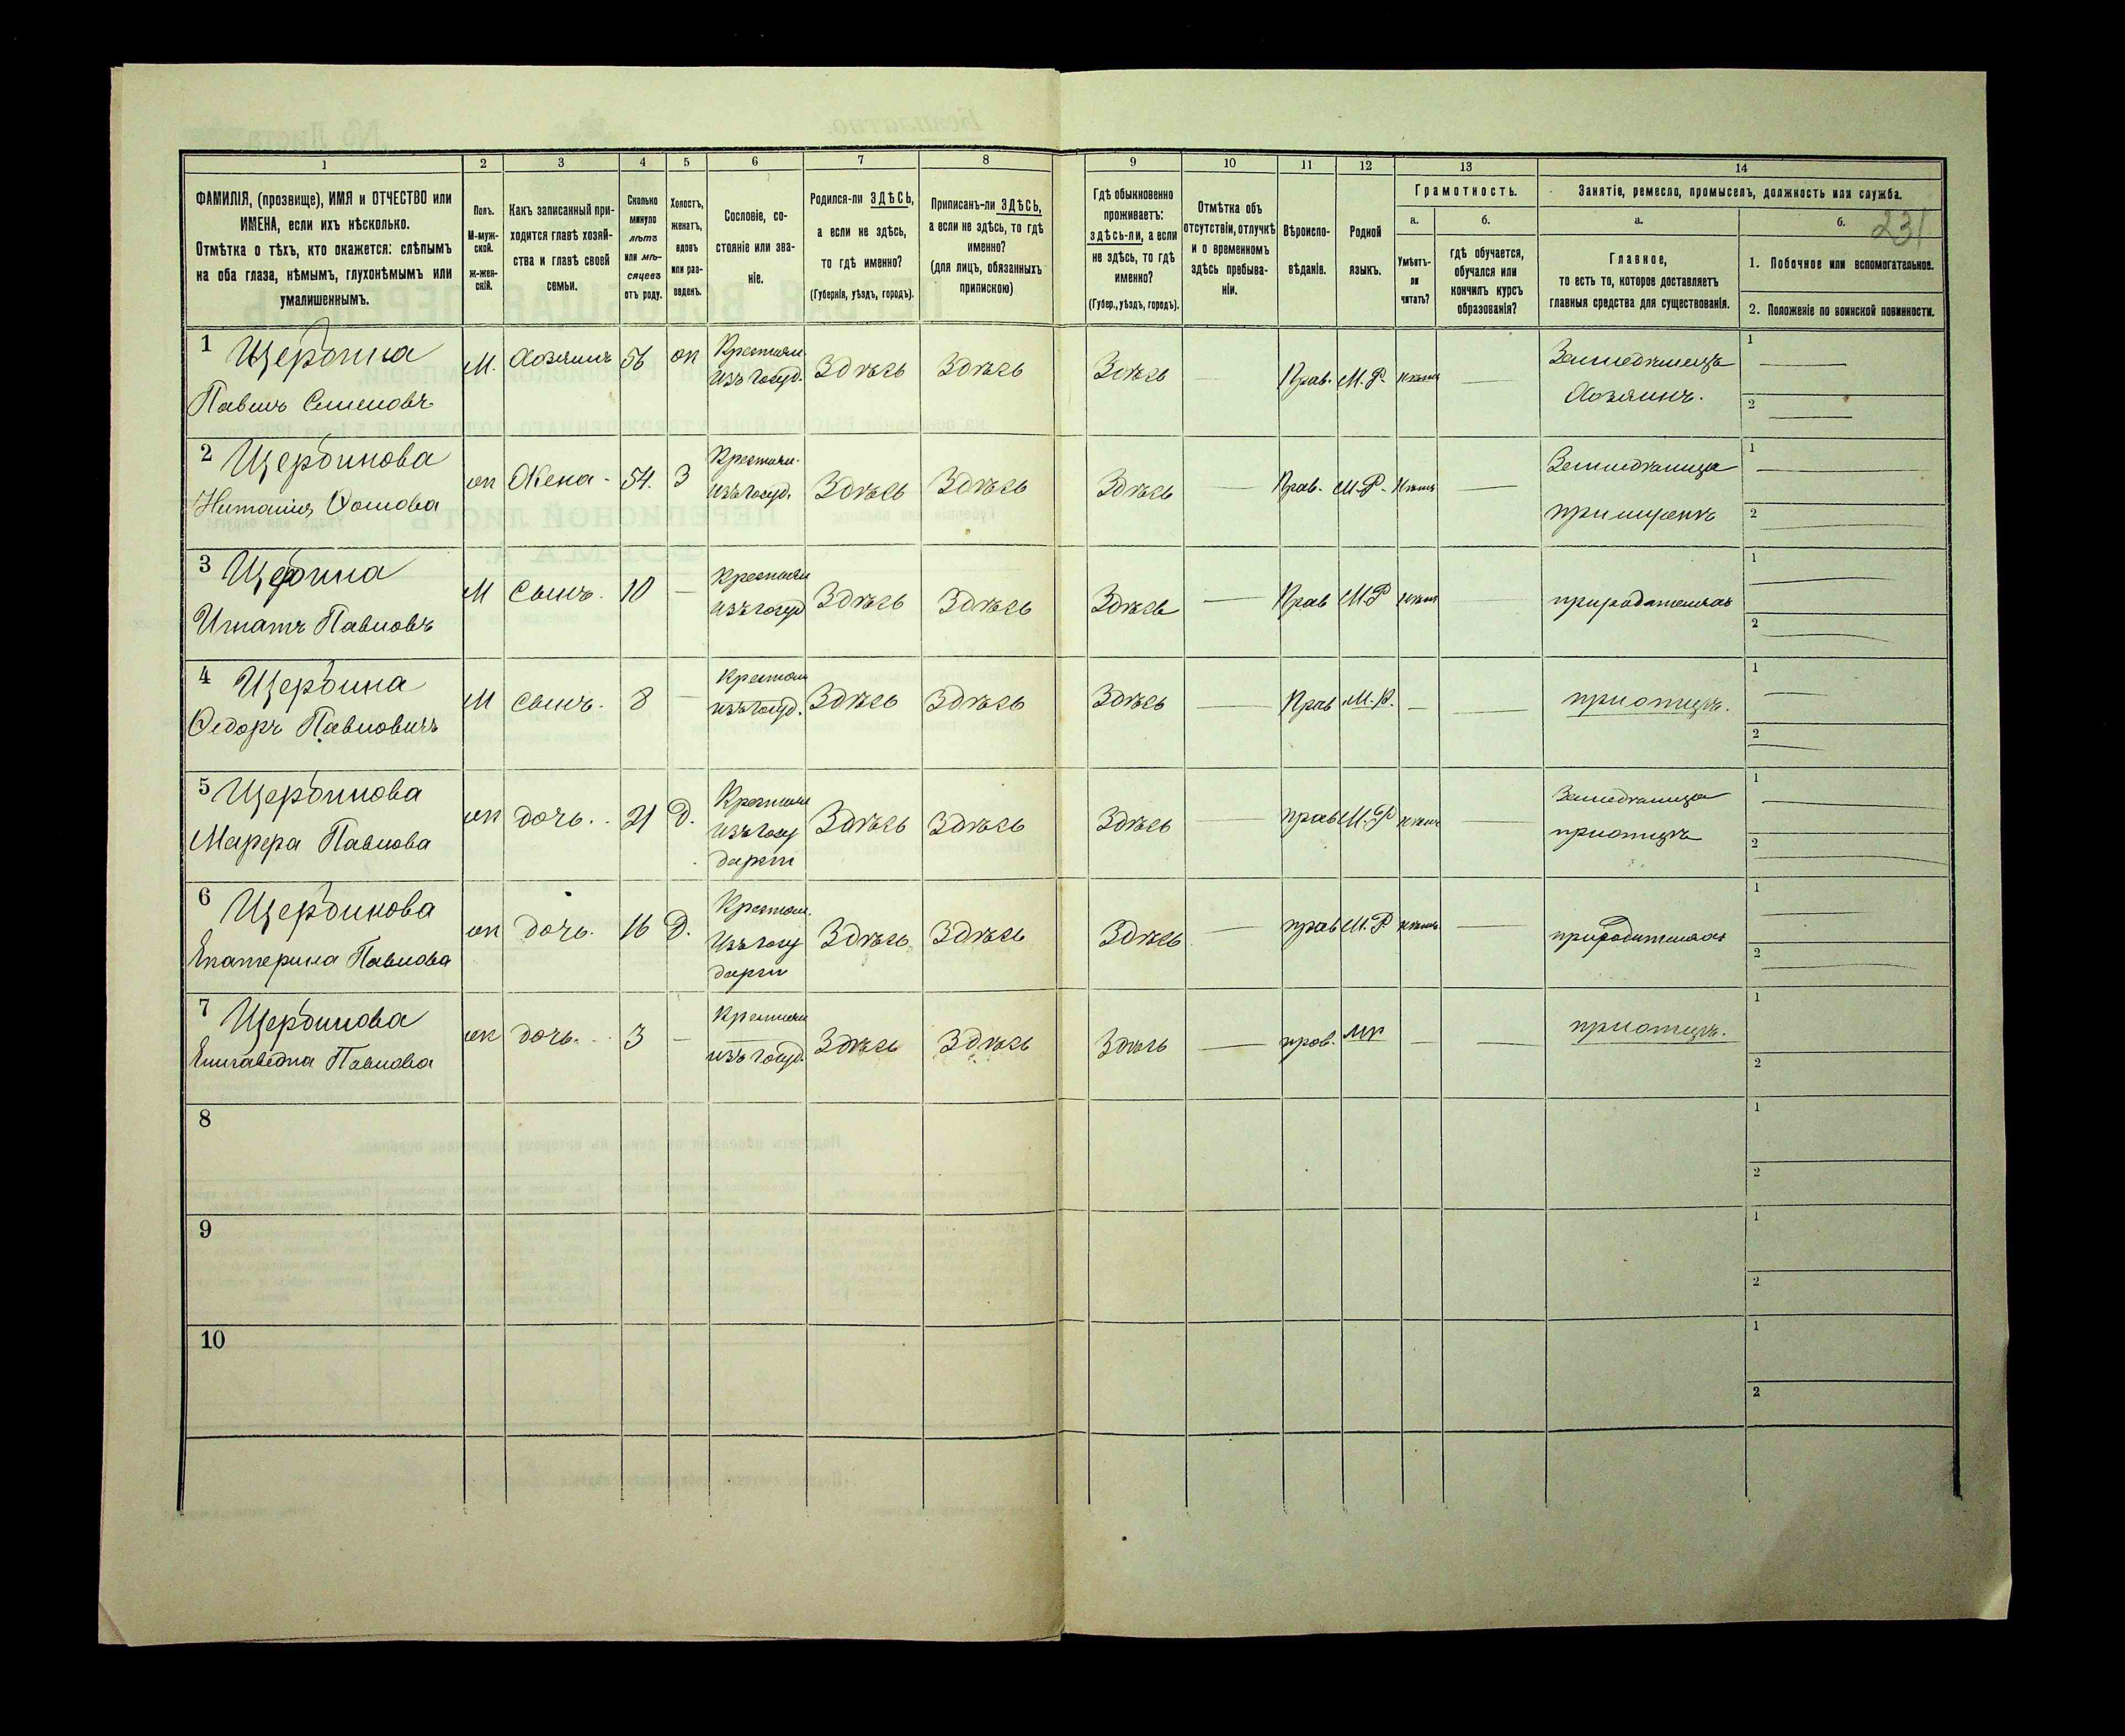 1 2 3 4 5 6 7 8 9 10 11 12 13 14
ФАМИЛІЯ, (прозвище), ИМЯ и ОТЧЕСТВО или
ИМЕНА, если ихъ нѣсколько.
Отмѣтка о тѣхъ, кто окажется: слѣпымъ
на оба глаза, нѣмымъ, глухонѣмымъ или
умалишеннымъ.
Полъ.
М-муж-
ской.
Ж-жен-
скій.
Какъ записанный при-
ходится главѣ хозяй-
ства и главѣ своей
семьи.
Сколько
минуло
лѣтъ
или мѣ-
сяцевъ
отъ роду.
Холостъ,
женатъ,
вдовъ
или раз-
веденъ.
Сословіе, со-
стояніе или зва-
ніе.
Родился-ли ЗДѢСЬ,
а если не здѣсь,
то гдѣ именно?
(Губернія, уѣздъ, городъ).
Приписанъ-ли ЗДѢСЬ,
а если не здѣсь, то гдѣ
именно?
(для лицъ, обязанныхъ
припискою)
Гдѣ обыкновенно
проживаетъ:
здѣсь-ли, а если
не здѣсь, то гдѣ
именно?
(Губер., уѣздъ, городъ).
Отмѣтка объ
отсутствіи, отлучкѣ
и о временномъ
здѣсь пребыва-
ніи.
Вѣроиспо-
вѣданіе.
Родной
языкъ.
Грамотность.
а.
Умѣетъ-
ли
читать?
б.
гдѣ обучается,
обучался или
кончилъ курсъ
образованія?
Занятіе, ремесло, промыселъ, должность или служба.
а.
Главное,
то есть то, которое доставляетъ
главныя средства для существованія.
б. 231
1. Побочное или вспомогательное.
2. Положеніе по воинской повинности.
1 Щербина
Павелъ Семеновъ
М. Хозяинъ 56 жп Крестьян. изъ госуд. Здѣсь Здѣсь Здѣсь — Прав. М.Р. нѣтъ — Земледѣлецъ
Хозяинъ.
1 —
2 —
2 Щербинова
Наталия Фомова
жп Жена - 54. З Крестьян. изъ госуд. Здѣсь Здѣсь Здѣсь — Прав. М.Р. нѣтъ — Земледѣлица
1 —
2 —
3 Щербина
Игнатъ Павловъ
М Сынъ. 10 — Крестьян изъ госуд Здѣсь Здѣсь Здѣсь — Прав М.Р нѣтъ — природителяхъ
1 —
2 —
4 Щербина
Федоръ Павловичъ
М Сынъ. 8 — Крестьян изъ госуд. Здѣсь Здѣсь Здѣсь — Прав М.Р. — — приотцѣ.
1 —
2 —
5 Щербинова
Марфа Павлова
жп дочь. 21 Д. Крестьян изъ госу дарст Здѣсь Здѣсь Здѣсь — прав М.Р нѣтъ — Земледѣлица
приотцѣ
1 —
2 —
6 Щербинова
Екатерина Павлова
жп дочь. 16 Д. Крестьян. изъ госу дарст Здѣсь Здѣсь Здѣсь — прав М.Р нѣтъ — природителяхъ
1 —
2 —
7 Щербинова
Елизавета Павлова
жп дочь. 3 — Крестьян изъ госуд. Здѣсь Здѣсь Здѣсь — прав. мр — — приотцѣ.
1
2
8
1
2
9
1
2
10
1
2